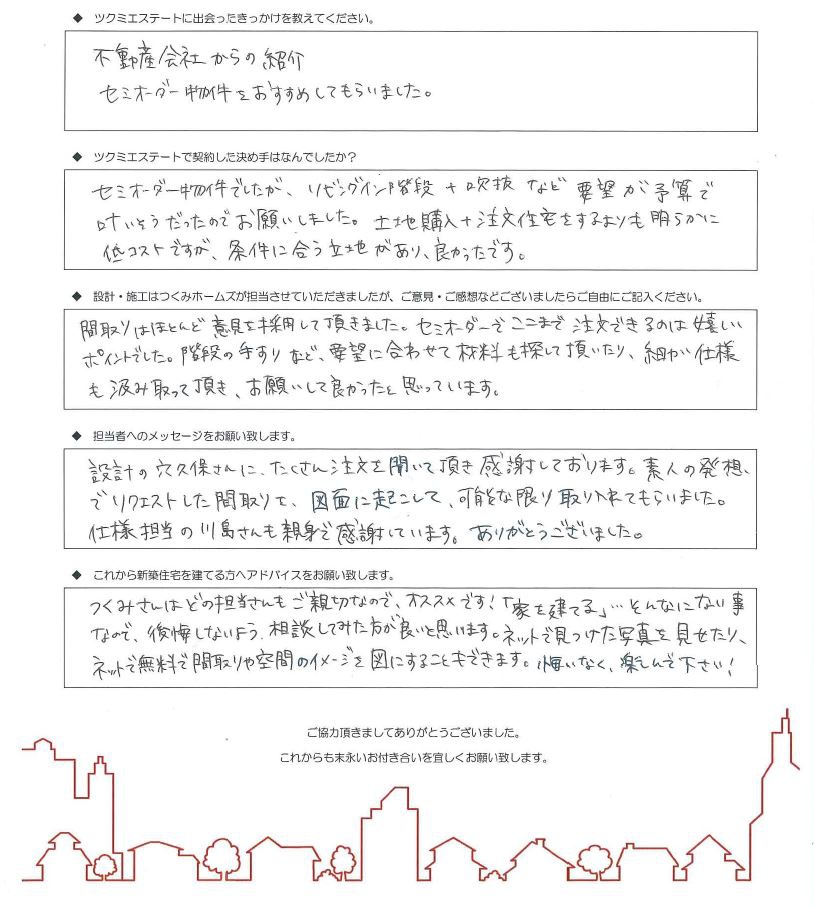 ◆ ツクミエステートに出会ったきっかけを教えてください。
不動産会社からの紹介
セミオーダー物件をおすすめしてもらいました。
◆ ツクミエステートで契約した決め手はなんでしたか?
セミオーダー物件でしたが、リビングイン階段+吹抜など要望が予算で
叶いそうだったのでお願いしました。土地購入+注文住宅をするよりも明らかに
低コストですが、条件に合う立地があり、良かったです。
◆ 設計・施工はつくみホームズが担当させていただきましたが、ご意見・ご感想などございましたらご自由にご記入ください。
間取りはほとんど意見を採用して頂きました。セミオーダーでここまで注文できるのは嬉しい
ポイントでした。階段の手すりなど、要望に合わせて材料も探して頂いたり、細かい仕様
も汲み取って頂き、お願いして良かったと思っています。
◆ 担当者へのメッセージをお願い致します。
設計の穴久保さんに、たくさん注文を聞いて頂き感謝しております。素人の発想、
でリクエストした間取りを、図面に起こして、可能な限り取り入れてもらいました。
仕様担当の川島さんも親身で感謝しています。ありがとうございました。
◆ これから新築住宅を建てる方へアドバイスをお願い致します。
つくみさんはどの担当さんもご親切なので、オススメです!「家を建てる」…そんなにない事
なので、後悔しないよう、相談してみた方が良いと思います。ネットで見つけた写真を見せたり、
ネットで無料で間取りや空間のイメージを図にすることもできます。悔いなく、楽しんで下さい!
ご協力頂きましてありがとうございました。
これからも末永いお付き合いを宜しくお願い致します。